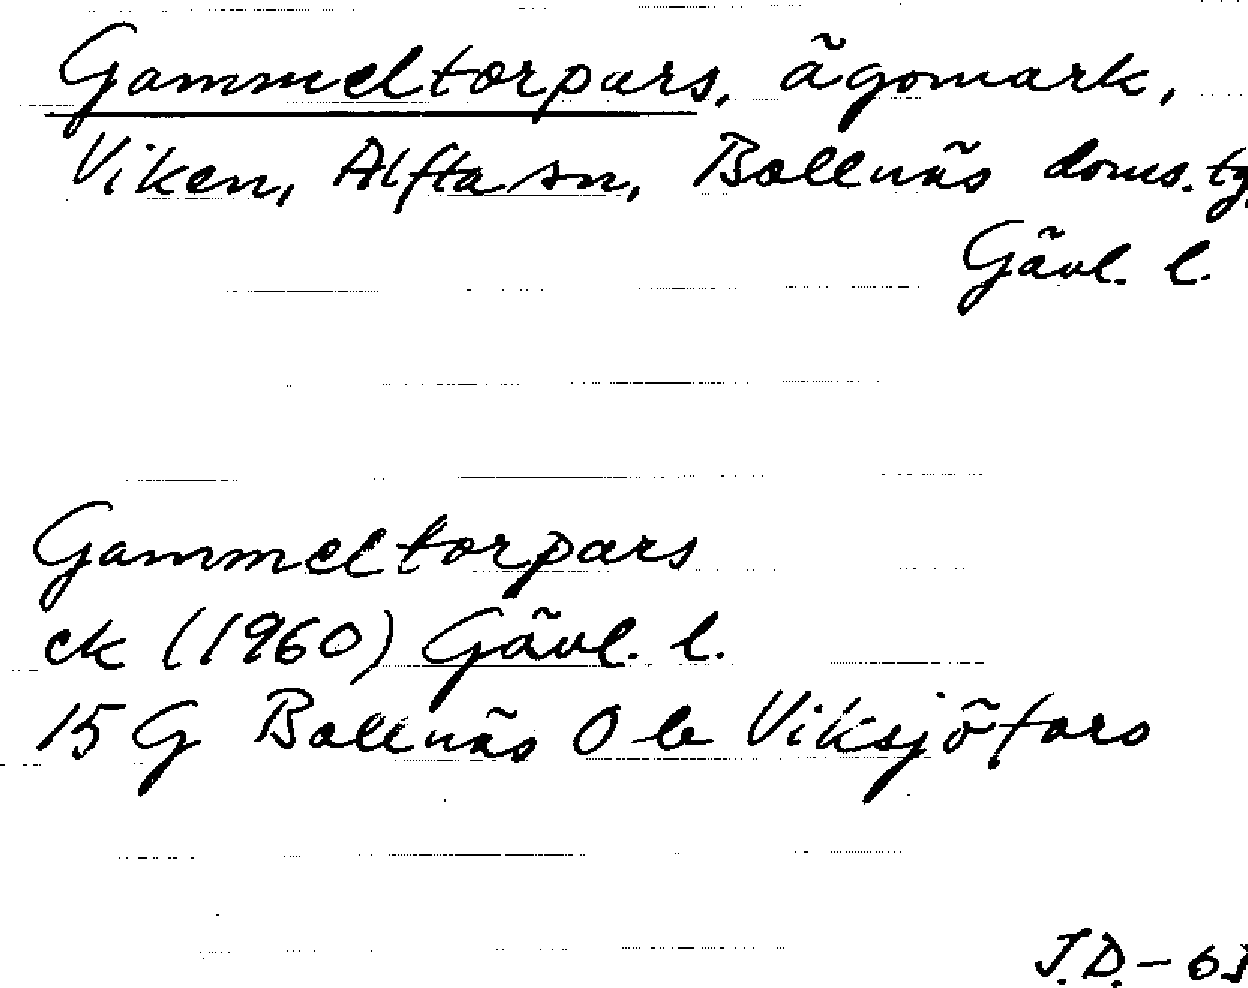 Gammeltorpars, ägomark,
Viken, Alfta sn, Bollnäs doms.tg.
Gävl. l.
Gammeltorpars
ek (1960) Gävl. l.
15 G Bollnäs 0 b Viksjöfors
J.D. -